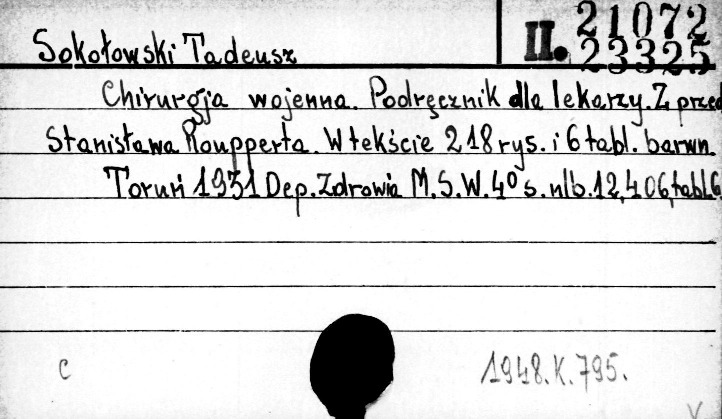 Sokołowski Tadeusz
II. 21072
23325
Chirurgja wojenna. Podręcznik dla lekarzy. Z przed
Stanisława Roupperta. W tekście 218 rys. i 6 tabl. barwn.
Toruń 1931 Dep. Zdrowia M.S.W. 4° s. nlb. 12, 406, tabl. 6
c
1948.K.795.
v